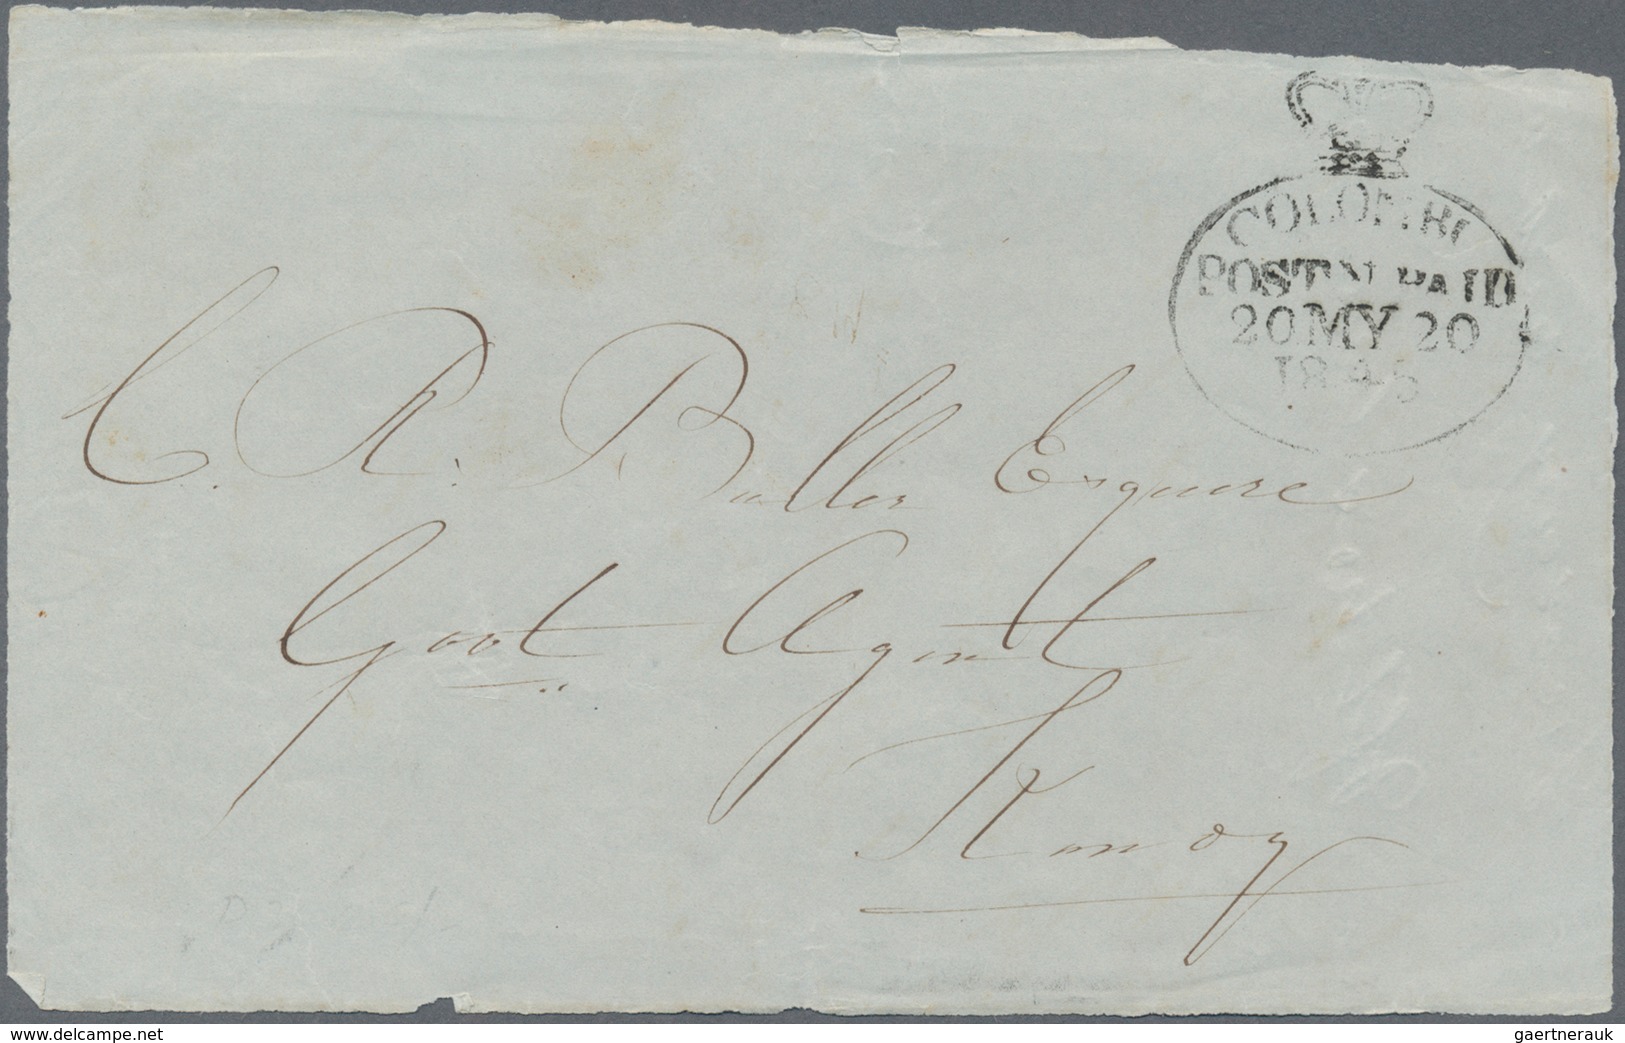 COLOMBO
POST PAID
20 MY 20
184
C. R. Buller Esquire
Govt Agent
Kandy
www.delcampe.net
gaertnerauk